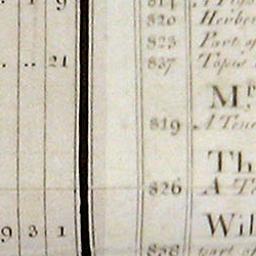 1 9
814
820
823 Part of
.. .. 21
837
Mr
819 A Tene
Th
826 A Te
Wil
9 3 1
838 part of